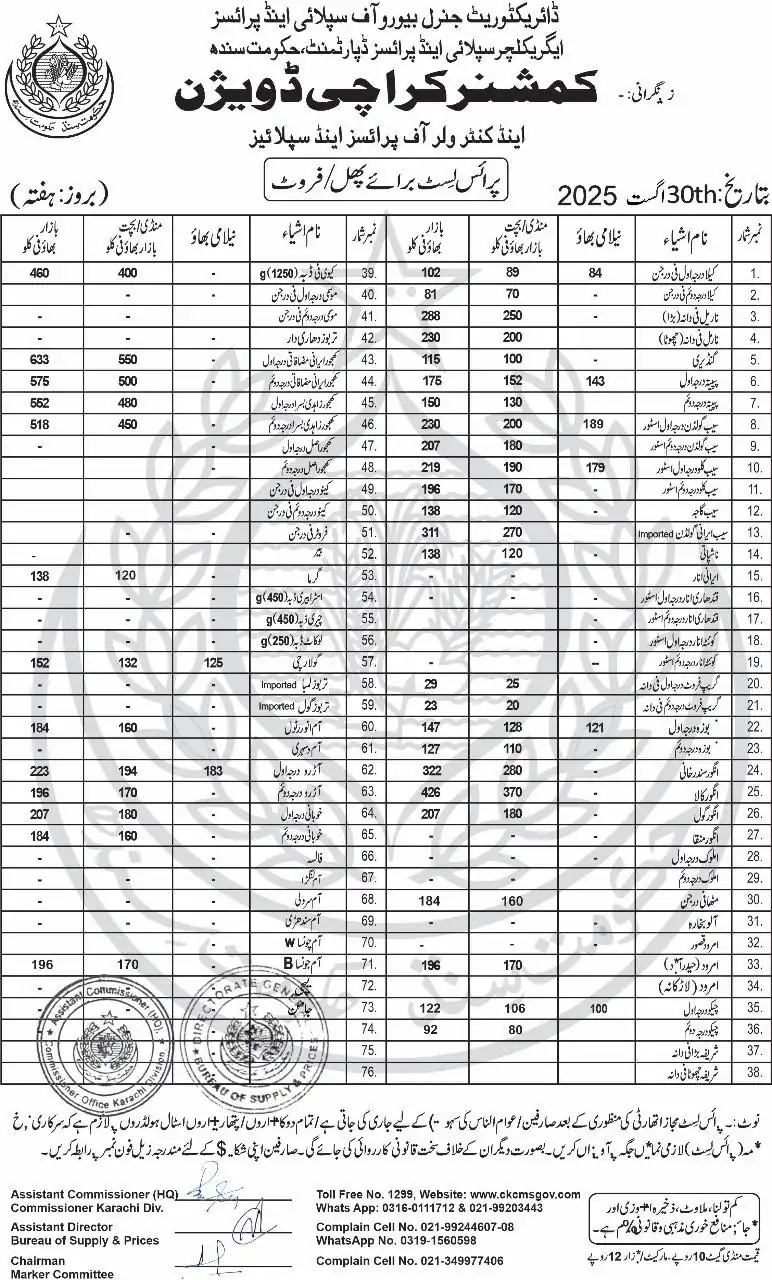 ڈائریکٹوریٹ جنرل بیورو آف سپلائی اینڈ پرائسز
ایگریکلچر سپلائی اینڈ پرائسز ڈپارٹمنٹ، حکومت سندھ
زیرنگرانی:-
کمشنر کراچی ڈویژن
اینڈ کنٹرولر آف پرائسز اینڈ سپلائیز
پرائس لسٹ برائے پھل/فروٹ
بتاریخ: 30th اگست 2025
(بروز: ہفتہ)
نمبر شمار نام اشیاء نیلامی بھاؤ منڈی/بچت بازار بھاؤ فی کلو بازار بھاؤ فی کلو نمبر شمار نام اشیاء نیلامی بھاؤ منڈی/بچت بازار بھاؤ فی کلو بازار بھاؤ فی کلو
1. کیلا درجہ اول فی درجن 84 89 102
2. کیلا درجہ دوئم فی درجن - 70 81
3. ناریل فی دانہ (بڑا) - 250 288
4. ناریل فی دانہ (چھوٹا) - 200 230
5. گنڈیری - 100 115
6. پپیتہ درجہ اول 143 152 175
7. پپیتہ درجہ دوئم - 130 150
8. سیب گولڈن درجہ اول اسٹور 189 200 230
9. سیب گولڈن درجہ دوئم اسٹور - 180 207
10. سیب کلو درجہ اول اسٹور 179 190 219
11. سیب کلو درجہ دوئم اسٹور - 170 196
12. سیب گاجہ - 120 138
13. سیب ایرانی گولڈن Imported - 270 311
14. ناشپاتی - 120 138
15. ایرانی انار - - -
16. قندھاری انار درجہ اول اسٹور - - -
17. قندھاری انار درجہ دوئم اسٹور - - -
18. کوئٹہ انار درجہ اول اسٹور -
19. کوئٹہ انار درجہ دوئم اسٹور – - -
20. گریپ فروٹ درجہ اول فی دانہ - 25 29
21. گریپ فروٹ درجہ دوئم فی دانہ - 20 23
22. بوزہ درجہ اول 121 128 147
23. بوزہ درجہ دوئم - 110 127
24. انگور سندرخانی - 280 322
25. انگور کالا - 370 426
26. انگور گول - 180 207
27. انگور منقا - - -
28. املوک درجہ اول - - -
29. املوک درجہ دوئم - - -
30. مٹھا فی درجن - 160 184
31. آلو بخارہ - - -
32. امرود قصور - - -
33. امرود (حیدرآباد) - 170 196
34. امرود (لاڑکانہ) - - -
35. چیکو درجہ اول 100 106 122
36. چیکو درجہ دوئم - 80 92
37. شریفہ بڑا فی دانہ - - -
38. شریفہ چھوٹا فی دانہ - - -
39. کیوی فی ڈبہ (1250)g - 400 460
40. موسمی درجہ اول فی درجن - - -
41. موسمی درجہ دوئم فی درجن - - -
42. تربوز دھاری دار - - -
43. کھجور ایرانی مضافاتی درجہ اول - 550 633
44. کھجور ایرانی مضافاتی درجہ دوئم - 500 575
45. کھجور زاہدی بسرا درجہ اول - 480 552
46. کھجور زاہدی بسرا درجہ دوئم - 450 518
47. کھجور اصل درجہ اول - - -
48. کھجور اصل درجہ دوئم - - -
49. کینو درجہ اول فی درجن
50. کینو درجہ دوئم فی درجن
51. فروٹر فی درجن - -
52. بیر - -
53. گرما - 120 138
54. اسٹرابیری ڈبہ (450)g - - -
55. چیری ڈبہ (450)g - - -
56. لوکاٹ ڈبہ (250)g - - -
57. گولارچی 125 132 152
58. تربوز لمبا Imported - - -
59. تربوز گول Imported - - -
60. آم انور رٹول - 160 184
61. آم دسہری - - -
62. آڑو درجہ اول 183 194 223
63. آڑو درجہ دوئم - 170 196
64. خوبانی درجہ اول - 180 207
65. خوبانی درجہ دوئم - 160 184
66. فالسہ - - -
67. آم لنگڑا - - -
68. آم سرولی - - -
69. آم سندھڑی - - -
70. آم چونسا W - - -
71. آم چونسا B - 170 196
72. لیچی - - -
73. جامن - - -
74. - - -
75.
76.
Assistant Commissioner (HQ), Commissioner Office Karachi Division
DIRECTORATE GENERAL BUREAU OF SUPPLY & PRICES
نوٹ:۔ پرائس لسٹ مجاز اتھارٹی کی منظوری کے بعد صارفین/عوام الناس کی کے لیے جاری کی جاتی ہے/تمام اسٹال ہولڈروں پر لازم ہے کہ سرکاری
(پرائس لسٹ) لازمی جگہ پر کریں۔ بصورت دیگر ان کے خلاف سخت قانونی کارروائی کی جائے گی۔ صارفین اپنی کے لئے مندرجہ ذیل فون نمبر پر رابطہ کریں۔
Assistant Commissioner (HQ)
Commissioner Karachi Div.
Assistant Director
Bureau of Supply & Prices
Chairman
Marker Committee
Toll Free No. 1299, Website: www.ckcmsgov.com
Whats App: 0316-0111712 & 021-99203443
Complain Cell No. 021-99244607-08
WhatsApp No. 0319-1560598
Complain Cell No. 021-349977406
کم تولنا، ملاوٹ، ذخیرہ اور
منافع خوری مذہبی و قانونی ہے۔
قیمت منڈی گیٹ 10 روپے۔ مارکیٹ/ 12 روپے